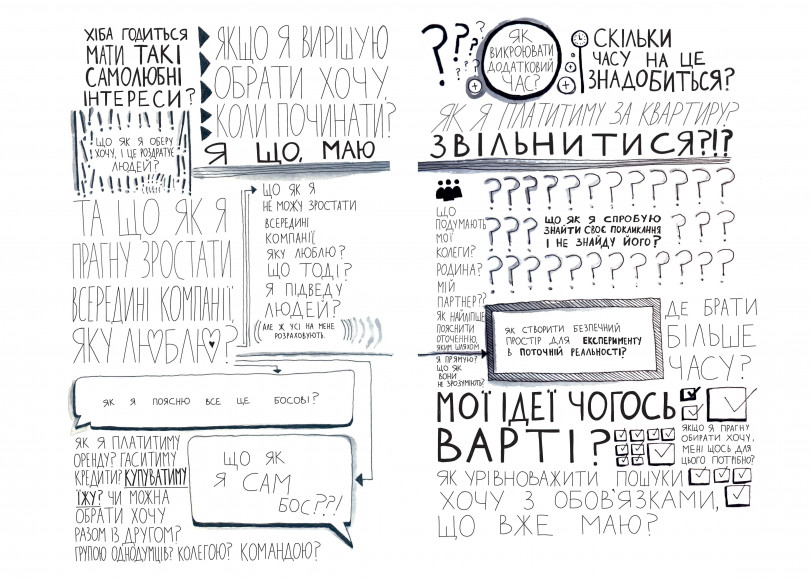 ХІБА ГОДИТЬСЯ
МАТИ ТАКІ
САМОЛЮБНІ
ІНТЕРЕСИ?
ЯКЩО Я ВИРІШУЮ
ОБРАТИ ХОЧУ,
КОЛИ ПОЧИНАТИ?
ЩО ЯК Я ОБЕРУ
ХОЧУ, І ЦЕ РОЗДРАТУЄ
ЛЮДЕЙ?
Я ЩО, МАЮ
ТА ЩО ЯК Я
ПРАГНУ ЗРОСТАТИ
ВСЕРЕДИНІ КОМПАНІЇ,
ЯКУ ЛЮБЛЮ?
ЩО ЯК Я
НЕ МОЖУ ЗРОСТАТИ
ВСЕРЕДИНІ
КОМПАНІЇ,
ЯКУ ЛЮБЛЮ?
ЩО ТОДІ?
Я ПІДВЕДУ
ЛЮДЕЙ?
(АЛЕ Ж УСІ НА МЕНЕ
РОЗРАХОВУЮТЬ.
ЯК Я ПОЯСНЮ ВСЕ ЦЕ БОСОВІ?
ЯК Я ПЛАТИТИМУ
ОРЕНДУ? ГАСИТИМУ
КРЕДИТИ? КУПУВАТИМУ
ЇЖУ? ЧИ МОЖНА
ОБРАТИ ХОЧУ
РАЗОМ ІЗ ДРУГОМ?
ГРУПОЮ ОДНОДУМЦІВ? КОЛЕГОЮ? КОМАНДОЮ?
ЩО ЯК
Я САМ
БОС??!
? ? ? ? ? ? ?
ЯК
ВИКРОЮВАТИ
ДОДАТКОВИЙ
ЧАС?
СКІЛЬКИ
ЧАСУ НА ЦЕ
ЗНАДОБИТЬСЯ?
ЯК Я ПЛАТИТИМУ ЗА КВАРТИРУ?
ЗВІЛЬНИТИСЯ?!?
ЩО
ПОДУМАЮТЬ
МОЇ
КОЛЕГИ?
РОДИНА?
МІЙ
ПАРТНЕР??
ЯК НАЙЛІПШЕ
ПОЯСНИТИ
ОТОЧЕННЮ,
ЯКИМ ШЛЯХОМ
Я ПРЯМУЮ?
ЩО ЯК
ВОНИ
НЕ ЗРОЗУМІЮТЬ?
? ? ? ? ? ? ? ? ? ? ? ?
ЩО ЯК Я СПРОБУЮ
ЗНАЙТИ СВОЄ ПОКЛИКАННЯ
І НЕ ЗНАЙДУ ЙОГО?
? ? ? ? ? ? ? ? ? ? ? ?
ЯК СТВОРИТИ БЕЗПЕЧНИЙ
ПРОСТІР ДЛЯ ЕКСПЕРИМЕНТУ
В ПОТОЧНІЙ РЕАЛЬНОСТІ?
ДЕ БРАТИ
БІЛЬШЕ
ЧАСУ?
МОЇ ІДЕЇ ЧОГОСЬ
ВАРТІ?
ЯКЩО Я ПРАГНУ
ОБИРАТИ ХОЧУ,
МЕНІ ЩОСЬ ДЛЯ
ЦЬОГО ПОТРІБНО?
ЯК УРІВНОВАЖИТИ ПОШУКИ
ХОЧУ З ОБОВ'ЯЗКАМИ,
ЩО ВЖЕ МАЮ?